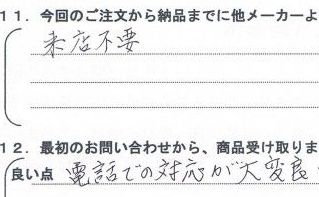 11．今回のご注文から納品までに他メーカーよ
来店不要
12．最初のお問い合わせから、商品受け取りま
良い点 電話での対応が大変良